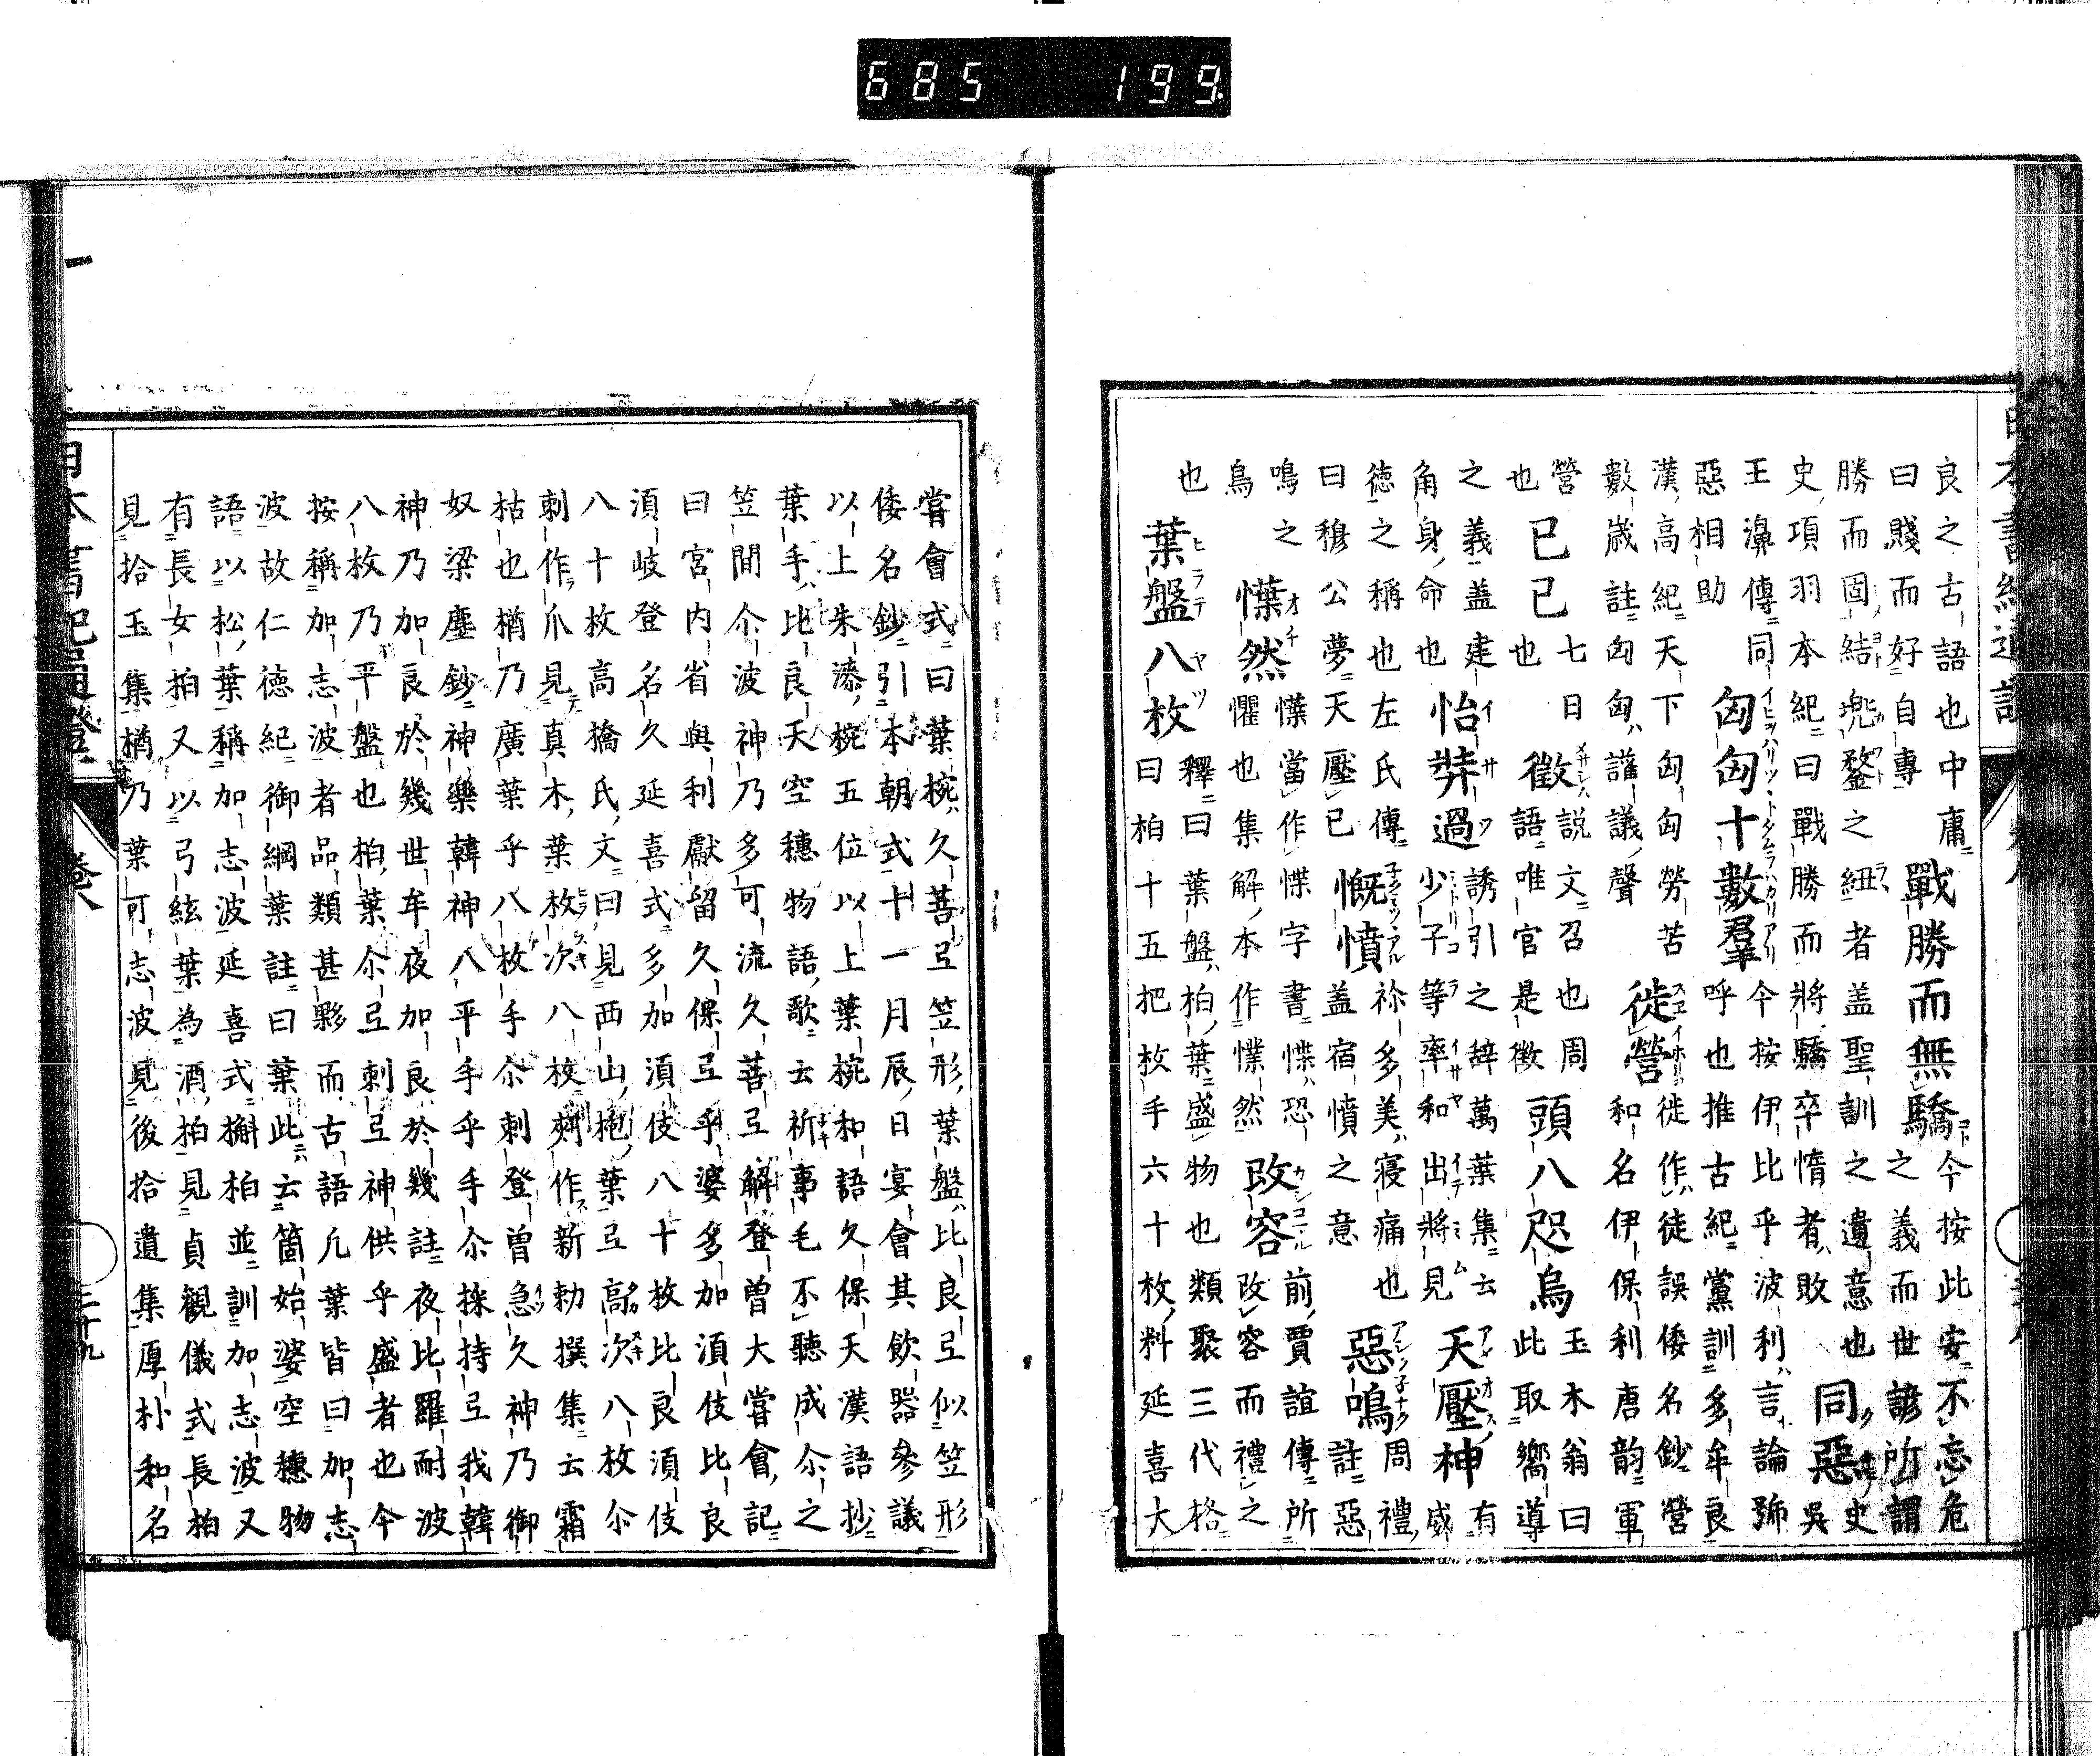 685 199
良之古語也中庸 戰勝而無驕 今按此安不忘危
曰賤而好自專 之義而世諺所謂
勝而固結兜鍪之紐者盖聖訓之遺意也 同惡 史
史項羽本紀曰戰勝而將驕卒惰者敗 吳
王濞傳同 匈匈十數羣 今按伊比乎波利言論號
惡相助 呼也推古紀黨訓多牟良
漢高紀天下匈匈勞苦 徙營 徙作徒誤倭名鈔營
數歳註匈匈讙議聲 和名伊保利唐韵軍
營 已已 七日 徵 説文召也周 頭八咫烏 玉木翁曰
也 也 語唯官是徵 此取嚮導
之義盖建 怡奘過 誘引之辞萬葉集云 天壓神 有
角身命也 少子等率和出將見 威
徳之稱也左氏傳 慨憤 祢多美寝痛也 惡鳴 周禮
曰穆公夢天壓已 盖宿憤之意 註惡
鳴之 慄然 慄當作惵字書惵恐 改容 前賈誼傳所
鳥 懼也集解本作㦨然 改容而禮之
也 葉盤八枚 釋曰葉盤柏葉盛物也類聚三代格
曰柏十五把枚手六十枚料延喜大
嘗會式曰葉椀久菩弖笠形葉盤比良弖似笠形
倭名鈔引本朝式十一月辰日宴會其飲器參議
以上朱漆椀五位以上葉椀和語久保天漢語抄
葉手比良天空穗物語歌云祈事毛不聽成尒之
笠間尒波神乃多可流久菩弖解登曽大嘗會記
曰宮内省與利獻留久保弖乎婆多加湏伎比良
湏岐登名久延喜式多加湏伎八十枚比良湏伎
八十枚高橋氏文曰見西山梔葉弖高次八枚尒
刺作爪見真木葉枚次八枚刺作新勅撰集云霜
枯也楢乃廣葉乎八枚手尒刺登曽急久神乃御
奴梁塵鈔神樂韓神八平手乎手尒採持弖我韓
神乃加良於幾世牟夜加良於幾註夜比羅耐波
八枚乃平盤也柏葉尒弖刺弖神供乎盛者也今
按稱加志波者品類甚夥而古語凢葉皆曰加志
波故仁徳紀御綱葉註曰葉此云箇始婆空穗物
語以松葉稱加志波延喜式槲柏並訓加志波又
有長女柏又以弓絃葉為酒柏見貞觀儀式長柏
見拾玉集楢乃葉可志波見後拾遺集厚朴和名
日本書紀通證 卷八 三十九